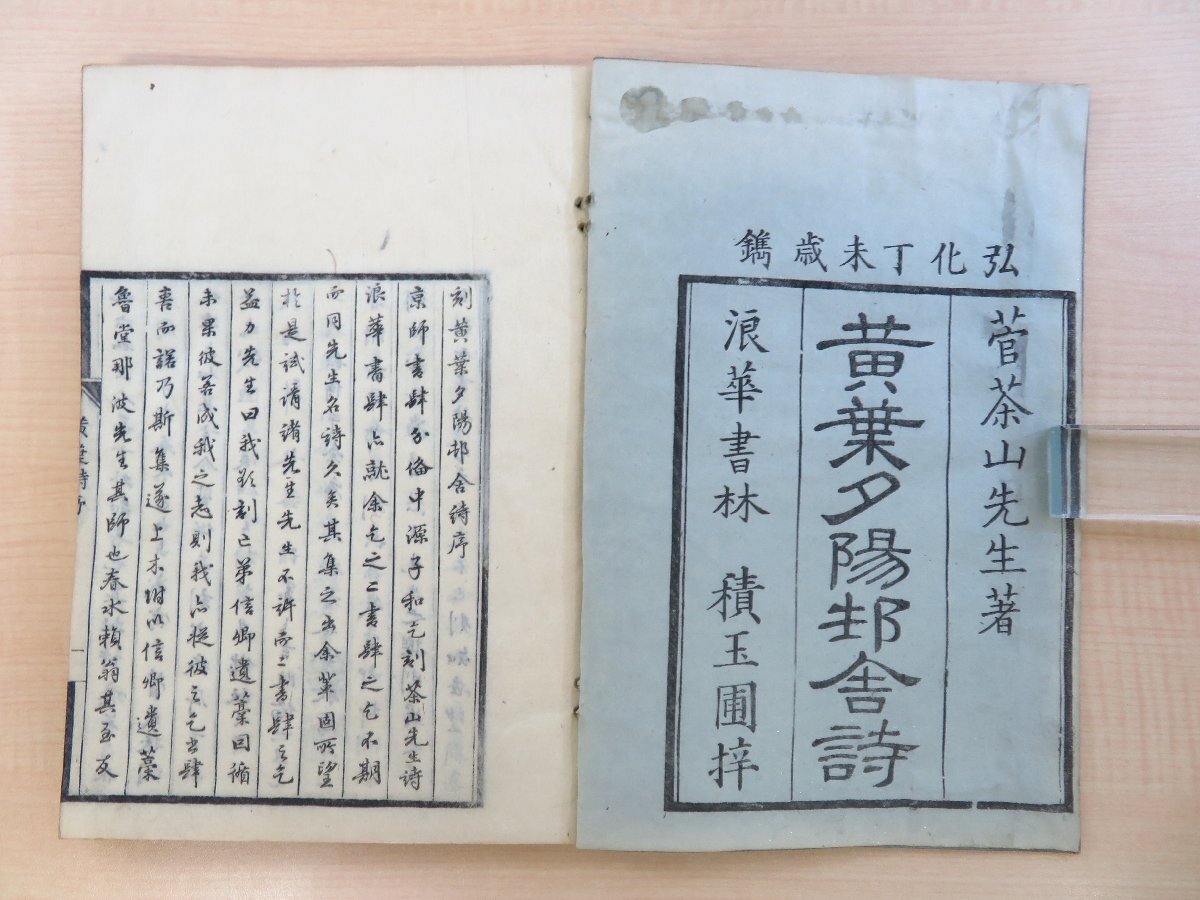 弘化丁未歳鐫
菅茶山先生著
黄葉夕陽邨舎詩
浪華書林　積玉圃梓
刻黄葉夕陽邨舎詩序
京師書肆分備中源子和乞刻茶山先生詩
浪華書肆亦就余乞之二書肆之乞不期
而同先生名詩久矣其集之出余輩固所望
於是試請諸先生先生不許而二書肆之乞
益力先生曰我欲刻亡弟信卿遺藁因循
未果彼若成我之志則我亦従彼之乞書肆
喜而諾乃斯集遂上木附以信卿遺藁
魯堂那波先生其師也春水頼翁其至友